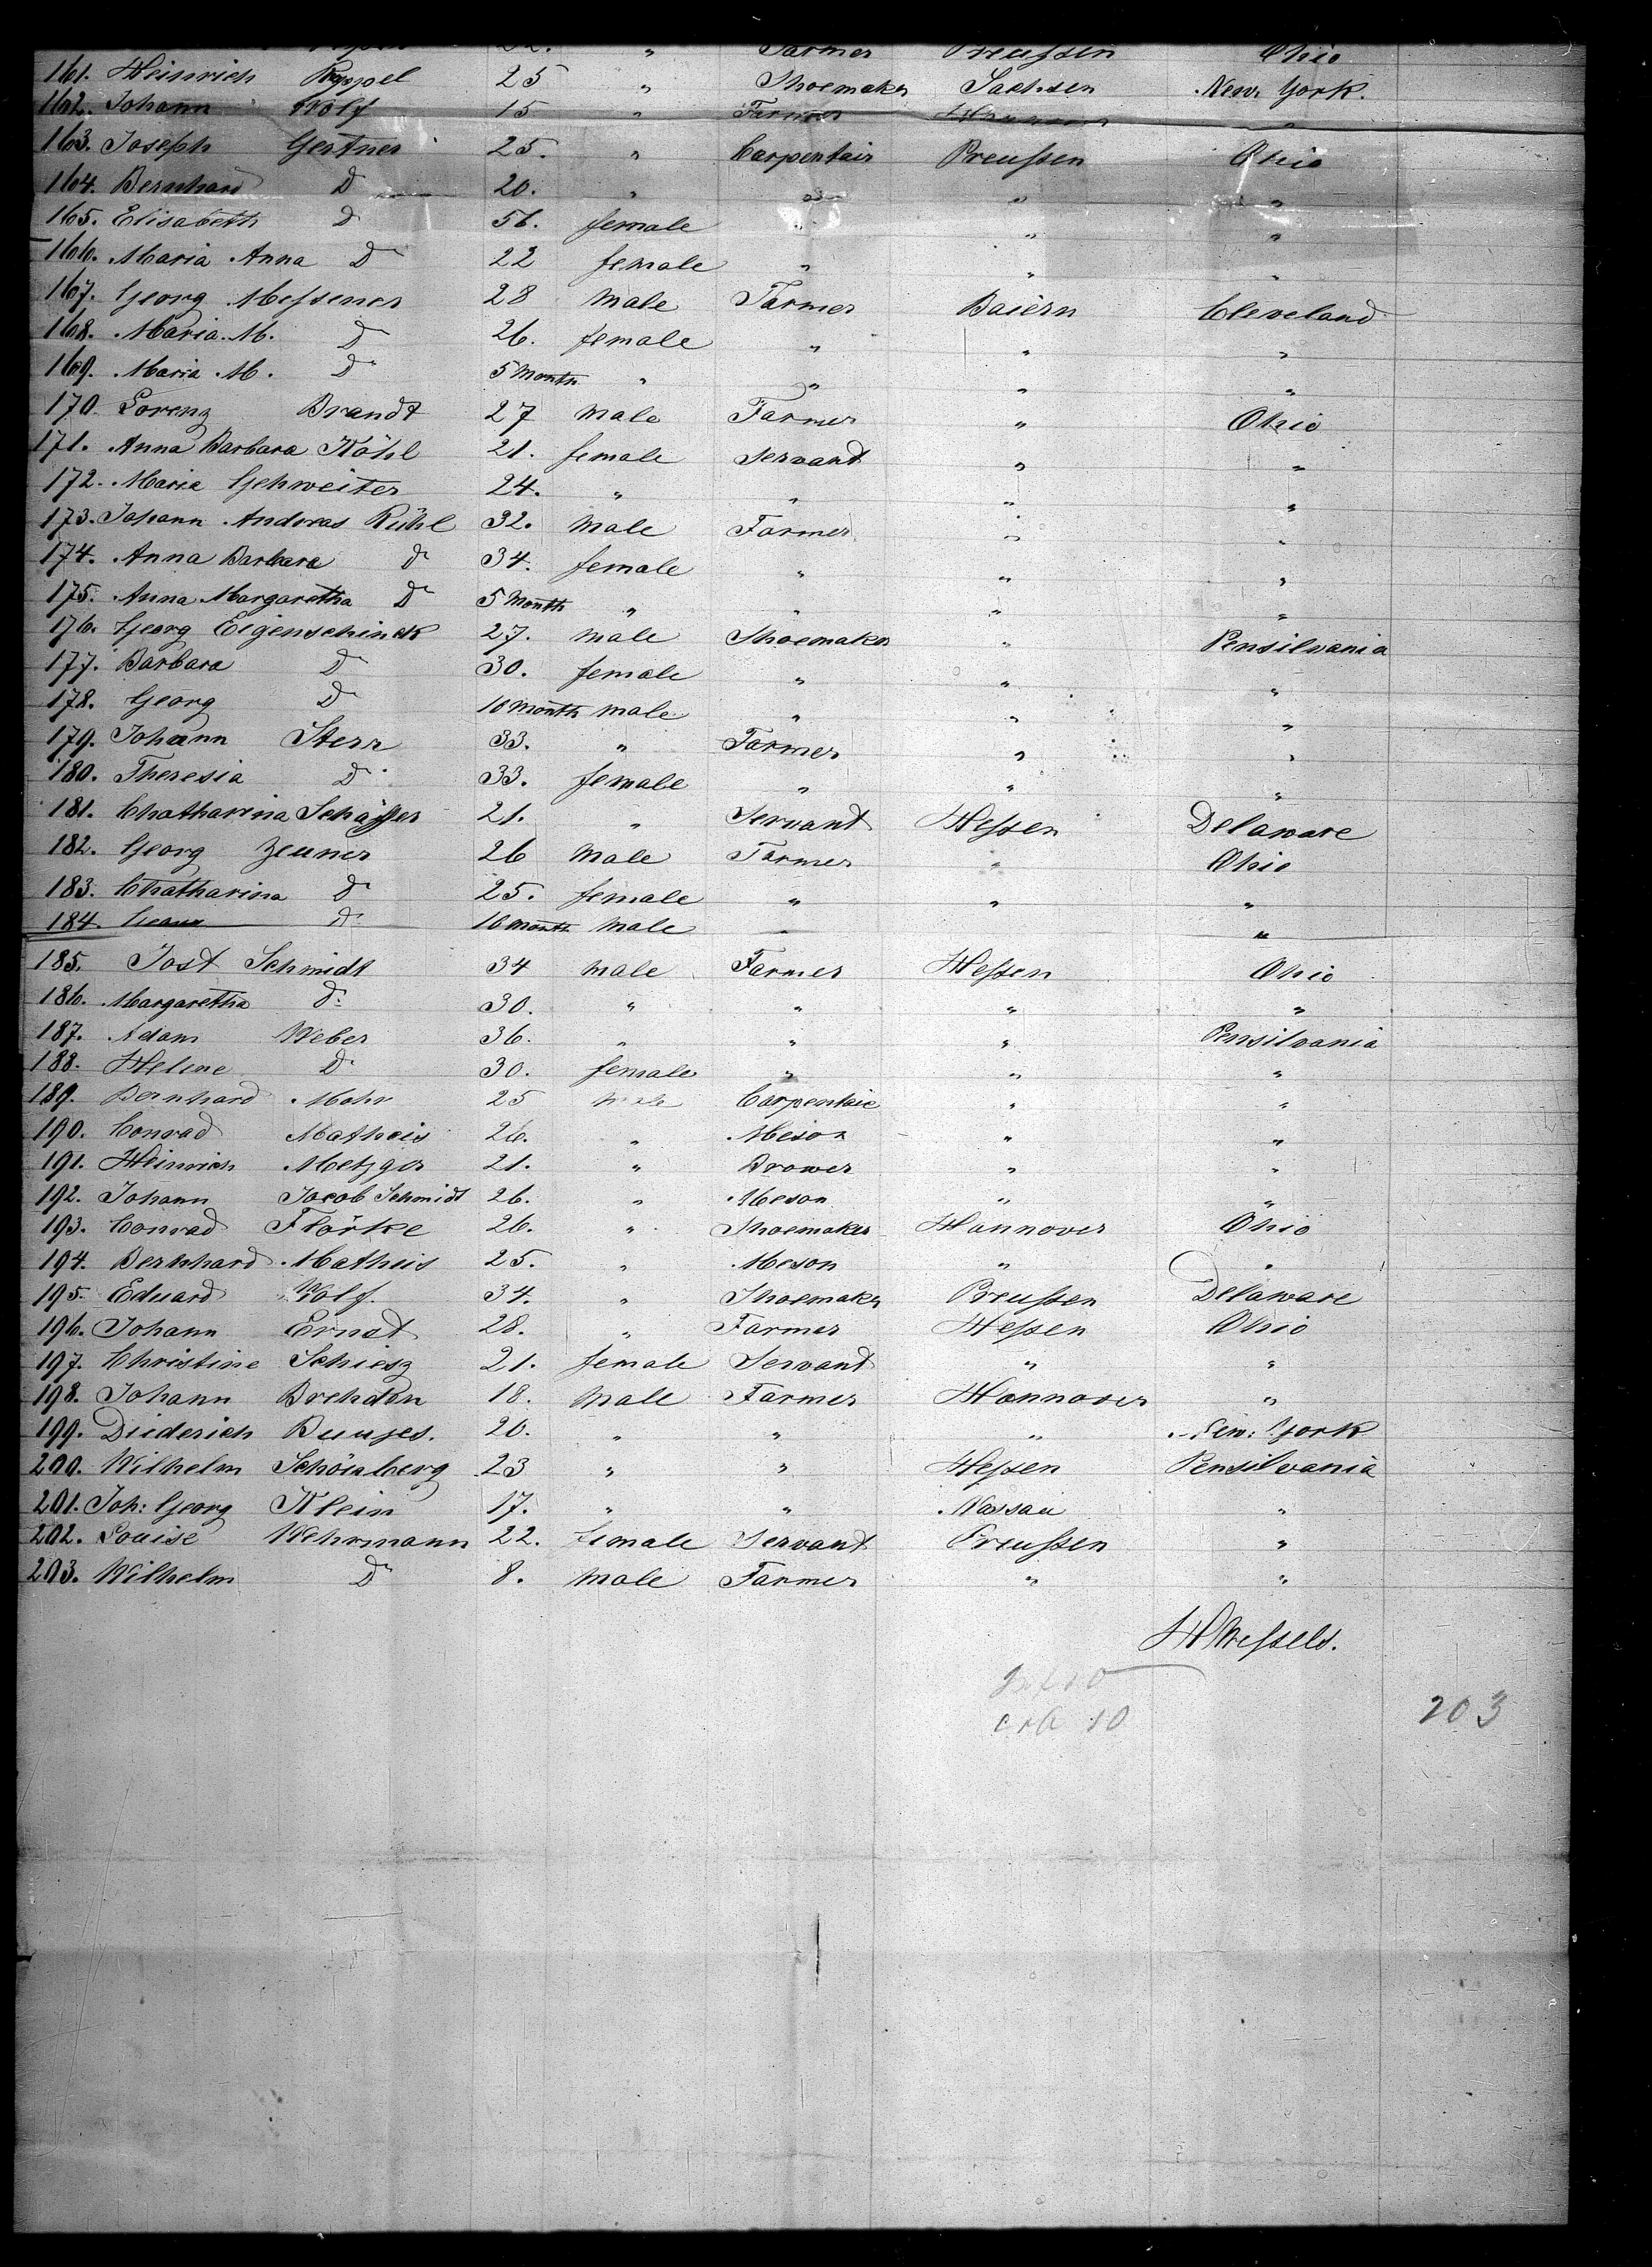 Farmer Preußen Ohio
161. Heinrich Roppel 25 " Shoemaker Sachsen New York.
162. Johann Wolf 15 " Farmer "
163. Joseph Gertner 25. " Carpentair Preußen Ohio
164. Bernhard Do 20. " " " "
165. Elisabeth Do 56. female " " "
166. Maria Anna Do 22 female " " "
167. Georg Meßener 28 Male Farmer Baiern Cleveland
168. Maria M. Do 26. female " " "
169. Maria M. Do 5 Month " " " "
170 Lorenz Brandt 27 Male Farmer " Ohio
171. Anna Barbara Köhl 21. female Servant " "
172. Maria Gehweiter 24. " " " "
173. Johann Andreas Rühl 32. Male Farmer " "
174. Anna Barbara Do 34. female " " "
175. Anna Margaretha Do 5 Month " " " "
176. Georg Eigenschinck 27. Male Shoemaker " Pensilvania
177. Barbara Do 30. female " " "
178. Georg Do 10 Month Male " " "
179. Johann Sterr 33. " Farmer " "
180. Theresia Do 33. female " " "
181. Chatharina Schäffer 21. " Servant Heßen Delaware
182. Georg Zeuner 26 Male Farmer " Ohio
183. Chatharina Do 25. female " " "
184. Do 10 Month Male " "
185. Jost Schmidt 34 Male Farmer Heßen Ohio
186. Margaretha Do 30. " " " "
187. Adam Weber 36. " " " Pensilvania
188. Helene Do 30. female " " "
189. Bernhard Mohr 25 Male Carpentaie " "
190. Conrad Matheis 26. " Meson " "
191. Heinrich Metzger 21. " Brower " "
192. Johann Jacob Schmidt 26. " Meson " "
193. Conrad Flörke 26. " Shoemaker Hannover Ohio
194. Bernhard Matheis 25. " Meson " "
195. Eduard Wolf. 34. " Shoemaker Preußen Delaware
196. Johann Ernst 28. " Farmer Heßen Ohio
197. Christine Schiesz 21. female Servant " "
198. Johann Brehdon 18. Male Farmer Hannover "
199. Diederich Buujes. 20. " " " New: York
200. Wilhelm Schönberg 23 " " Heßen Pensilvania
201. Joh: Georg Klein 17. " " Nassau "
202. Louise Wehrmann 22. female Servant Preußen "
203. Wilhelm Do 8. Male Farmer " "
HWeßels.
203